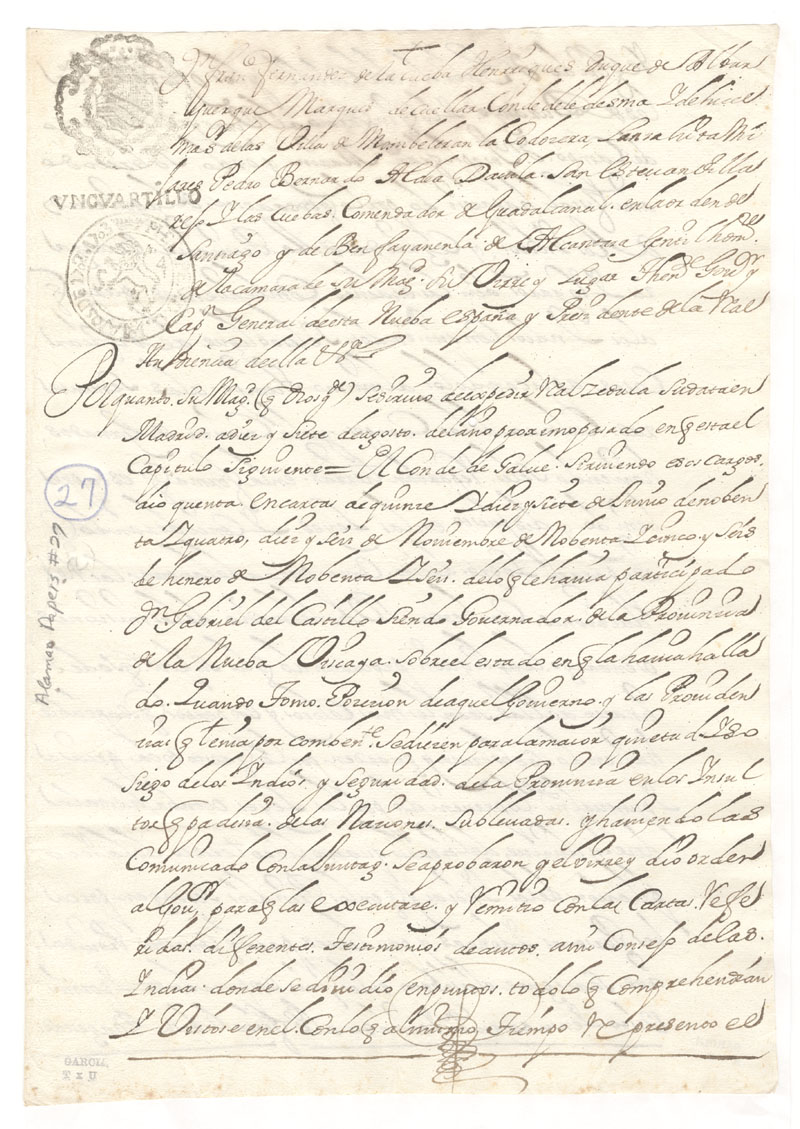 Dn. Fran. Fernandez de la Cueba Henrriques Duque de Albur
querque Marques de Cuellar Conde de Ledesma Y de huel
mas de las Villas de Mombeltran la Codozera, Lanzahita Mi
jares Pedro Bernardo Aldea Davila. San Estevan de Villa
rejo Y las Cuebas. Comendador de Guadalcanal. en la orden de
VNCVARTILLO
Santiago y de Benfayan en la de Alcantara Genl. hombre
de la camara de su Mag. su Virrey Lugar Thene. Govor. y
Capn. General de esta Nueba españa y Presidente de la Real
Audiencia de ella &a.
Por quanto. Su Mag. (q Dios ge) se sirvio de expedir Real Zedula su data en
Madrid. a diez y siete de agosto. del año proximo pasado en q esta el
Capitulo siguiente = El Conde de Galve. sirviendo esos cargos.
27
dio quenta en cartas de quinze Y diez y siete de Junio de noben
ta Y quatro, diez y seis de Noviembre de Nobenta Y cinco. y seis
de henero de Nobenta Y seis. de lo q le havia participado
Alamao Papers #27
Dn. Gabriel del Castillo siendo Governador. de la Provincia
de la Nueba Viscaya. sobre el estado en q la havia halla
do. Quando tomo. Posecion de aquel Govierno. y las Providen
cias q tenia por combente. se diesen para la maior quietud Y so
siego de los Indios y seguridad. de la Provincia en los Insul
tos q padesia. de las Naciones. sublevadas. y haviendo las
Comunicado Con la Junta q. se aprobaron y el virrey dio orden
al Govr. para q las executase. y Remitio Con las Cartas. Refe
ridas. diferentes. Testimonios de autos. a mi Consejo de las.
Indias. donde se dividio en puntos. todo lo q comprehendian
Y Vistos en el. Con lo q al mismo Tiempo Re presento el
GARCIA,